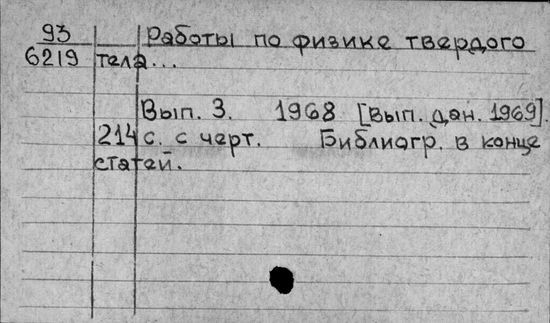 93 Работы по физике твердого
6219 тела...
Вып. 3. 1968 [Вып. дан. 1969].
214 с. с черт. Библиогр. в конце
статей.